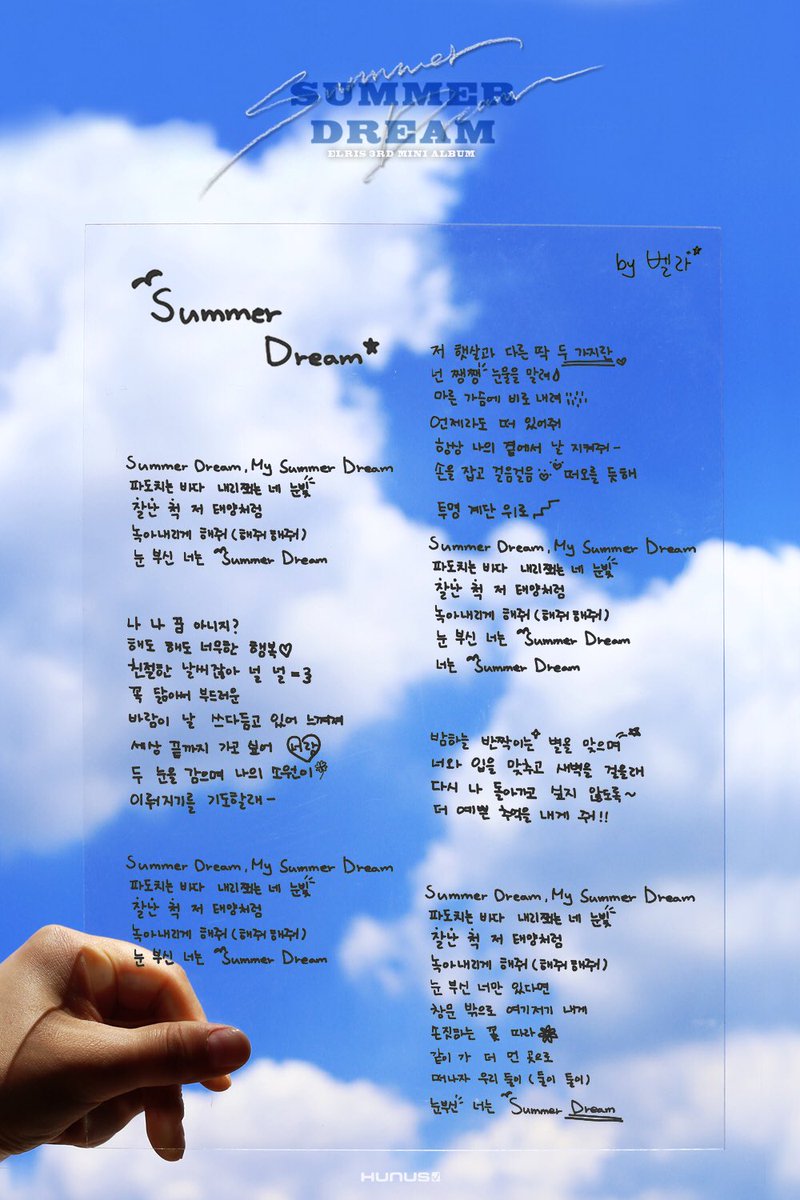 Summer Dream
SUMMER
DREAM
ELRIS 3RD MINI ALBUM
by 벨라
Summer
Dream
Summer Dream, My Summer Dream
파도치는 바다 내리쬐는 네 눈빛
잘난 척 저 태양처럼
녹아내리게 해줘 (해줘 해줘)
눈 부신 너는 Summer Dream
나 나 꿈 아니지?
해도 해도 너무한 행복♡
친절한 날씨같아 널 널 =3
꼭 닮아서 부드러운
바람이 날 쓰다듬고 있어 느껴져
세상 끝까지 가고 싶어 너랑
두 눈을 감으며 나의 소원이
이뤄지기를 기도할래-
Summer Dream, My Summer Dream
파도치는 바다 내리쬐는 네 눈빛
잘난 척 저 태양처럼
녹아내리게 해줘 (해줘 해줘)
눈 부신 너는 Summer Dream
저 햇살과 다른 딱 두 가지란
넌 쨍쨍 눈물을 말려
마른 가슴에 비로 내려
언제라도 떠 있어줘
항상 나의 곁에서 날 지켜줘-
손을 잡고 걸음걸음 떠오를 듯해
투명 계단 위로
Summer Dream, My Summer Dream
파도치는 바다 내리쬐는 네 눈빛
잘난 척 저 태양처럼
녹아내리게 해줘 (해줘 해줘)
눈 부신 너는 Summer Dream
너는 Summer Dream
밤하늘 반짝이는 별을 맞으며
너와 입을 맞추고 새벽을 걸을래
다시 나 돌아가고 싶지 않도록~
더 예쁜 추억을 내게 줘!!
Summer Dream, My Summer Dream
파도치는 바다 내리쬐는 네 눈빛
잘난 척 저 태양처럼
녹아내리게 해줘 (해줘 해줘)
눈 부신 너만 있다면
창문 밖으로 여기저기 내게
손짓하는 꽃 따라
같이 가 더 먼 곳으로
떠나자 우리 둘이 (둘이 둘이)
눈부신 너는 Summer Dream
HUNUS